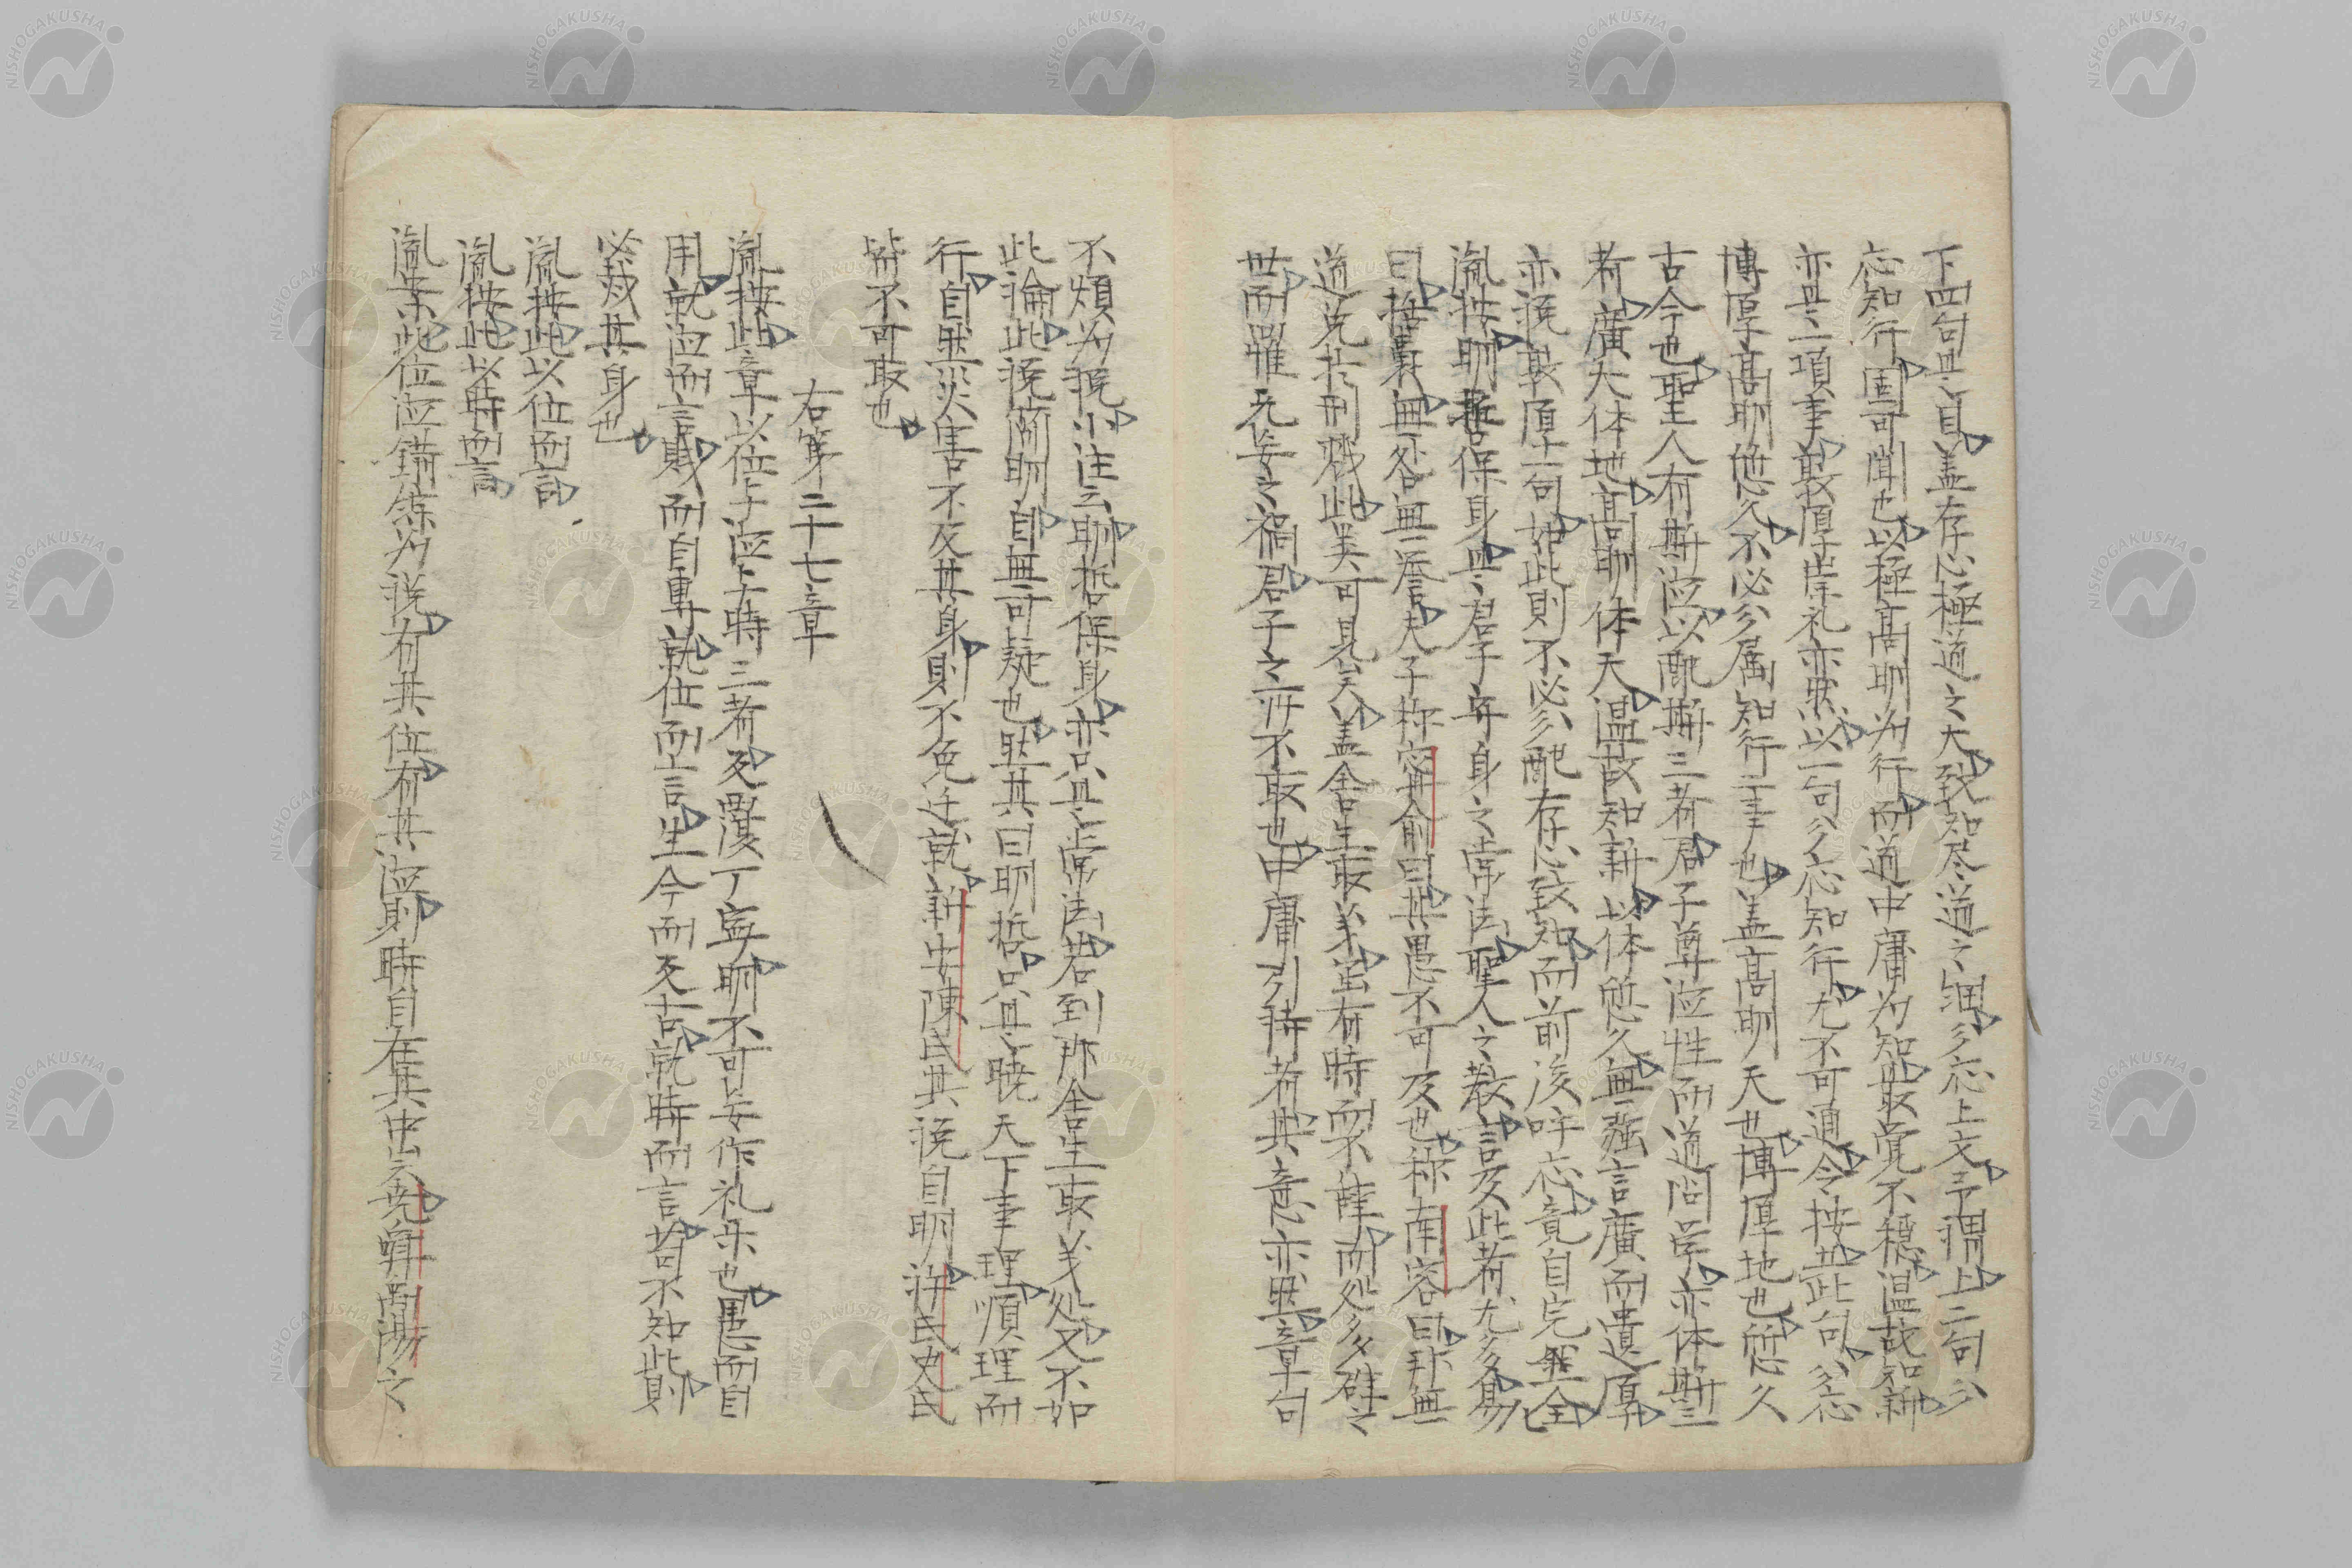 下四句是目盖存心極道之大致知尽道之細分応上文予謂上二句分
応知行固可聞也以極高明為行而道中庸為知最覚不穏温故知新
亦是二項事敦厚崇礼亦然以一句分応知行尤不可通今按此句分応
博厚高明悠久不必分属知行二事也盖高明天也博厚地也悠久
古今也聖人有斯徳以配斯三者君子尊徳性而道問学亦体斯三
者廣大体地高明体天温故知新以体悠久無彊言廣而遺厚
亦猶敦厚一句如此則不必分配存心致知而前後呼応竟自完全
胤按明哲保身是君子守身之常法聖人之教言及此者尤多易
曰括嚢無咎無誉夫子称甯俞曰其愚不可及也称南容曰邦無
道免於刑戮此類可見矣盖舍生取義固有時而不辞而処多難之
世而罹无妄之禍君子之所不取也中庸引詩者其意亦然章句
不煩為説小注云明哲保身亦只是常法若到那舍生取义処又不如
此論此説簡明自無可疑也然其曰明哲只是暁天下事理順理而
行自然災害不及其身則不免迁就新安陳氏其説自明許氏史氏
皆不可取也
右第二十七章
胤按此章以位与徳与時三者反覆丁寧明不可妄作礼楽也愚而自
用就徳而言賤而自專就位而言生今而反古就時而言苟不知此則
必烖其身也
胤按此以位而言
胤按此以時而言
胤案此位徳錯綜為説有其位有其徳則時自在其中出云尭舜禹湯之